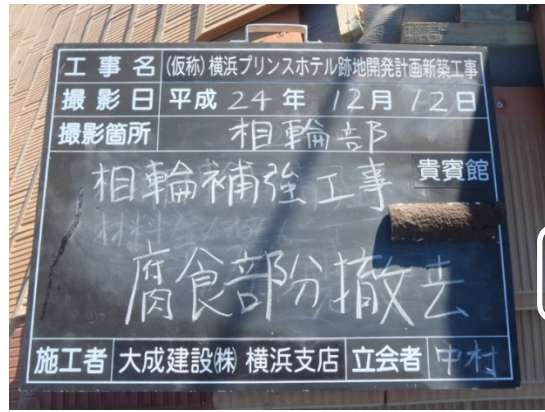 工事名 (仮称)横浜プリンスホテル跡地開発計画新築工事
撮影日 平成 24年 12月 12日
撮影箇所 相輪部
相輪補強工事 貴賓館
腐食部分撤去
施工者 大成建設㈱ 横浜支店 立会者 中村